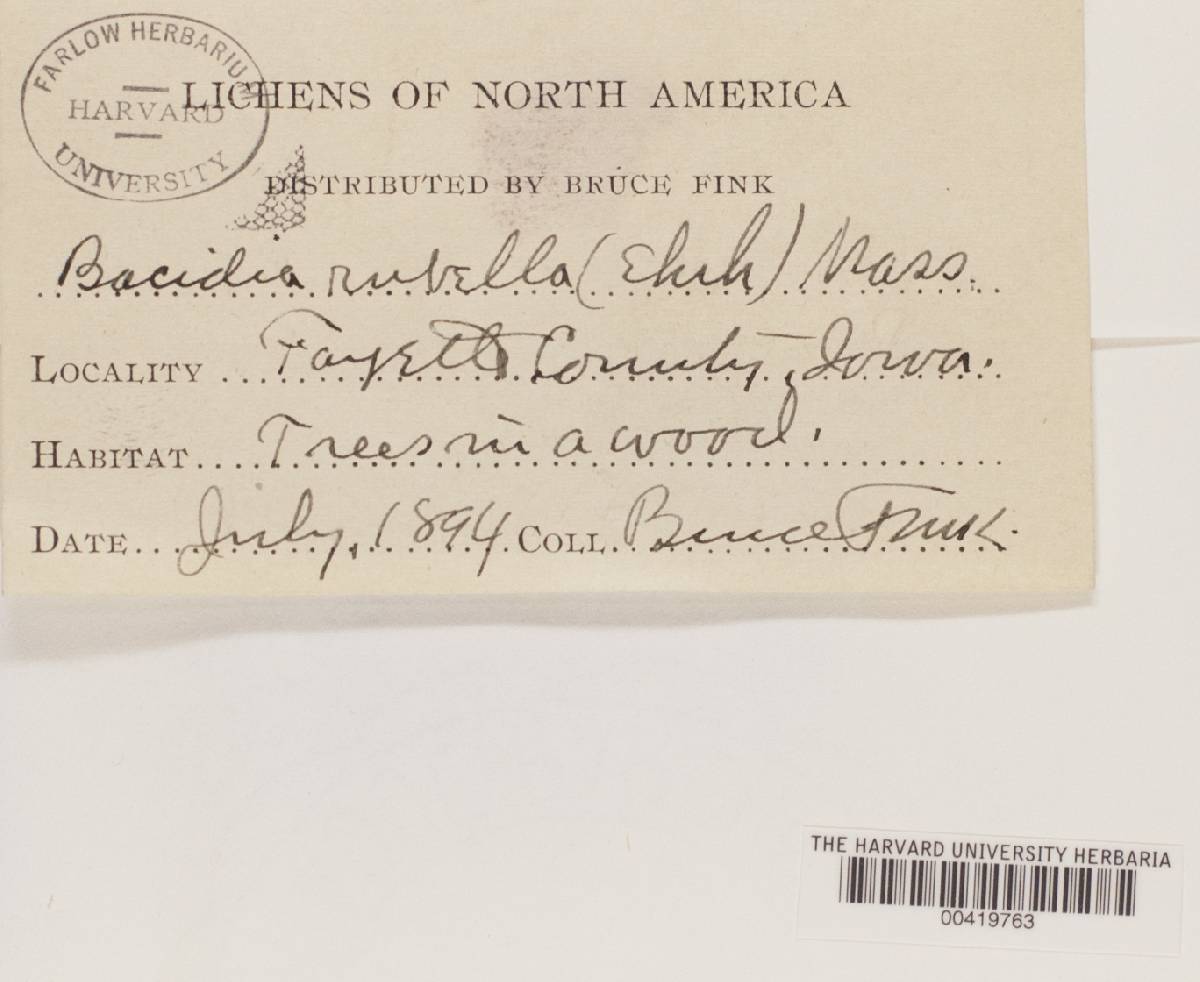 FARLOW HERBARIUM
HARVARD
UNIVERSITY
LICHENS OF NORTH AMERICA
DISTRIBUTED BY BRUCE FINK
Bacidia rubella (Ehrh) Mass.
LOCALITY Fayette County, Iowa.
HABITAT Trees in a wood.
DATE July, 1894 COLL. Bruce Fink.
THE HARVARD UNIVERSITY HERBARIA
00419763